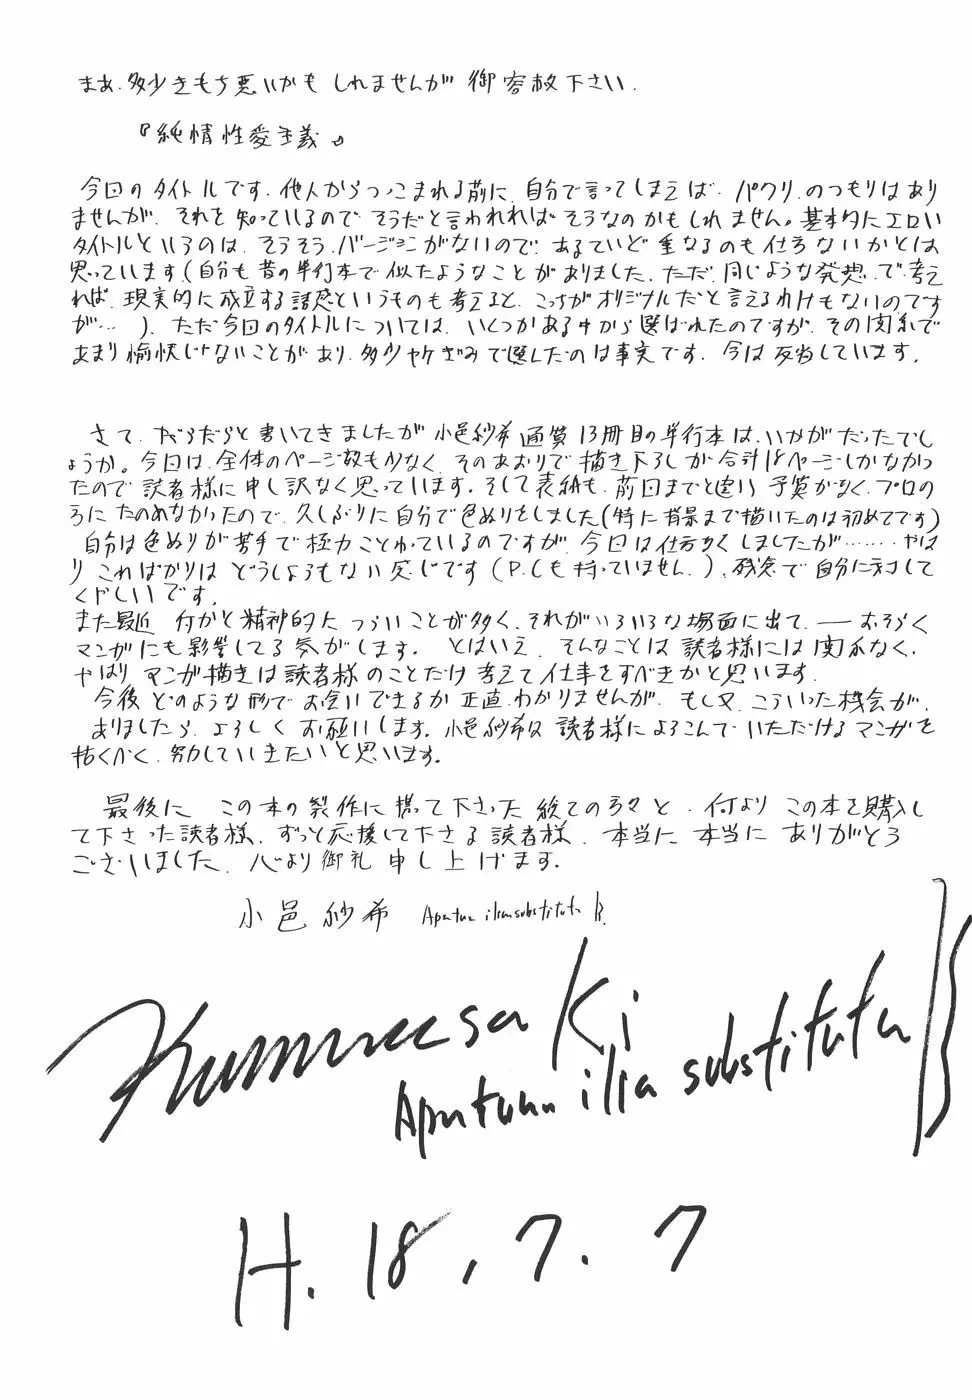 まあ、多少きもち悪いかもしれませんが御容赦下さい.
『純情性愛主義』
今回のタイトルです. 他人からつっこまれる前に、自分で言ってしまえば、パクリ、のつもりはあり
ませんが、それを知っているので そうだと言われればそうなのかもしれません。基本的にエロい
タイトルというのは、そうそう、バージョンがないので、あるていど 重なるのも仕方ないかとは
思っています(自分も昔の単行本で似たようなことがありました、ただ、同じような発想、で考え
れば、現実的に成立する誘惑というものも考えると、こっちがオリジナルだと言えるわけもないのです
が…). ただ今回のタイトルについては、いくつかある中から選ばれたのですが、その関係で
あまり愉快じゃないことがあり、多少ヤケぎみで選んだのは事実です. 今は反省しています.
さて、だらだらと書いてきましたが 小邑紗希 通算13冊目の単行本は、いかがだったでし
ょうか。今回は、全体のページ数も少なく、そのあおりで描き下ろしが合計18ページしかなかっ
たので 読者様に申し訳なく思っています. そして表紙も、前回までと違い 予算がなく、プロの
方に たのめなかったので、久しぶりに自分で色ぬりをしました(特に背景まで描いたのは初めてです)
自分は色ぬりが苦手で極力ことわっているのですが、今回は仕方なくしましたが……… やは
り こればかりは どうしようもない感じです(P.Cも持っていません.)、残念で自分に対して
くやしいです.
また最近 何かと精神的につらいことが多く、それがいろいろな場面に出て、――おそらく
マンガにも影響してる気がします. とはいえ、そんなことは読者様には関係なく、
やはり マンガ描きは読者様のことだけ考えて仕事をすべきかと思います.
今後どのような形でお会いできるか正直わかりませんが、もし又、こういった機会が、
ありましたら、よろしくお願いします. 小邑紗希は 読者様によろこんでいただけるマンガを
描くべく、努力していきたいと思います。
最後に この本の製作に携って下さった総ての方々と、何より この本を購入し
て下さった読者様、ずっと応援して下さる読者様、本当に 本当に ありがとう
ございました、心より御礼申し上げます.
小邑紗希 Apatura ilia substituta B.
KumuesaKi
Apatura ilia substituta B
H. 18, 7. 7